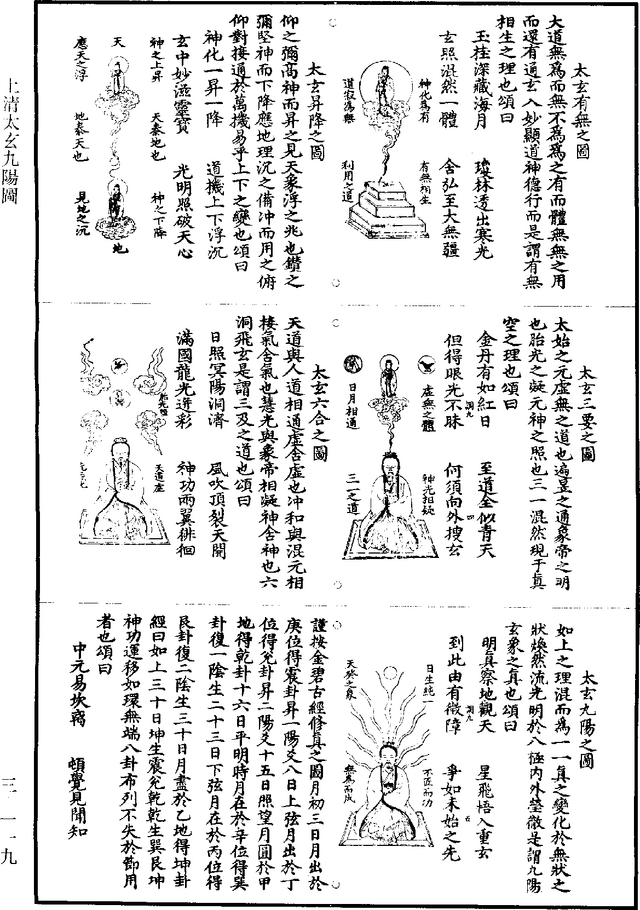 上清太玄九陽圖
三一一九
太玄有無之圖
大道無為而無不為為之有而體無無之用
而還有通玄入妙顯道神德行而是謂有無
相生之理也頌曰
玉桂深藏海月
瓊林透出寒光
玄照混然一體
含弘至大無疆
神化為有
有無相生
道祖為無
利用之道
太玄昇降之圖
仰之彌高神而昇之見天象浮之兆也鑽之
彌堅神而下降應地理沉之備冲而用之俯
仰對接通於萬機易乎上下之變也頌曰
神化一昇一降
道機上下浮沉
玄中妙滋靈寶
光明照破天心
神之上昇
天泰地也
神之下降
天
地
應天之浮
地泰天也
見地之沉
太玄三要之圖
太始之元虛無之道也遍昱之通象帝之明
也胎光之凝元神之照也三一混然現于真
空之理也頌曰
金丹有如紅日
至道全似青天
但得眼光不昧
何須向外搜玄
虛無之體
神光相凝
日月相通
三一之道
太玄六合之圖
天道與人道相通虛含虛也冲和與混元相
接氣含氣也慧光與象帝相凝神含神也六
洞飛玄是謂三及之道也頌曰
日照冥陽洞濟
風吹頂裂天開
滿國龍光迸彩
神功兩翼徘徊
太玄九陽之圖
如上之理混而為一一真之變化於無狀之
狀煥然流光明於八極內外瑩徹是謂九陽
玄象之真也頌曰
明真察地觀天
星飛悟入重玄
到此由有微障
爭如未始之先
日生純一
不匠而功
天癸之象
無為而成
謹按金碧古經修真之圖月初三日月出於
庚位得震卦昇一陽爻八日上弦月出於丁
位得兌卦昇二陽爻十五日照望月圓於甲
地得乾卦十六日平明時月在於辛位得巽
卦復一陰生二十三日下弦月在於丙位得
艮卦復二陰生三十日月盡於乙地得坤卦
經曰如上三十日坤生震兌乾乾生巽艮坤
神功運移如環無端八卦布列不失於節用
者也頌曰
中元易坎离
頓覺見聞知